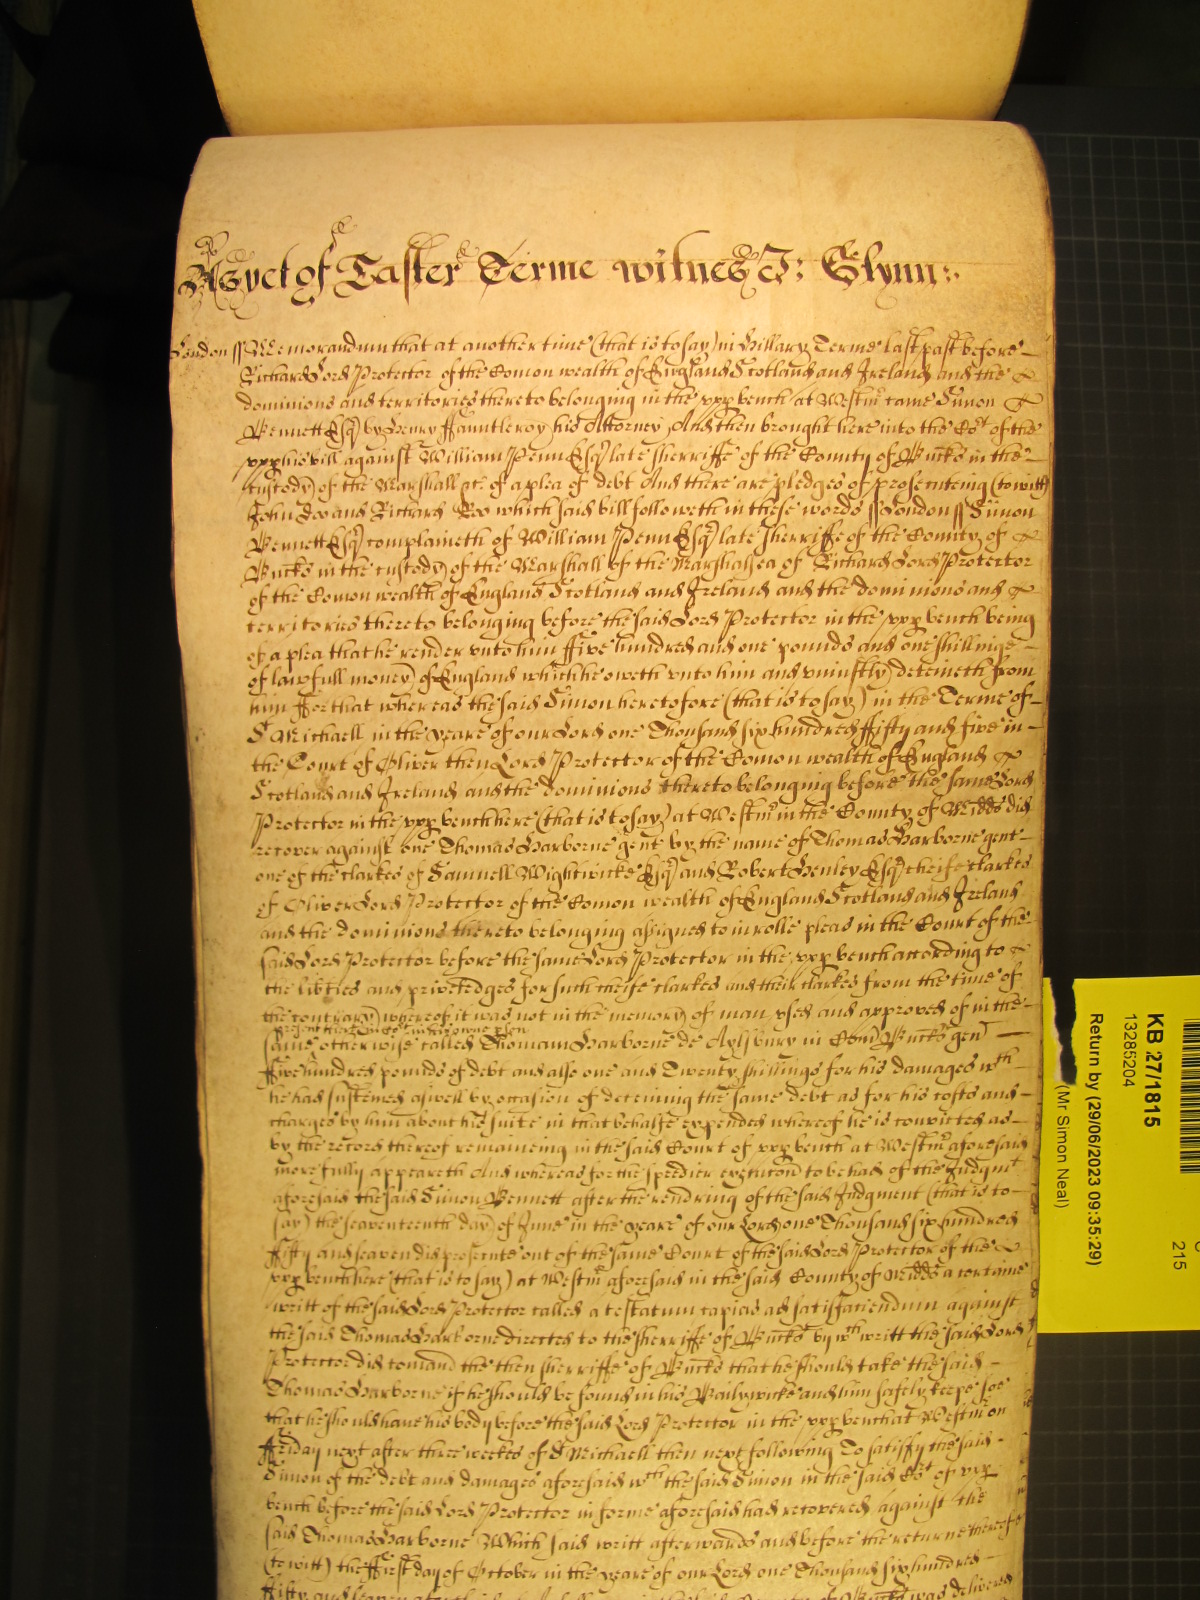 As yet of Easter Terme witnes J: Glynn:.
London ss Memorandum that at another time (that is to say) in Hillary Terme last past before
Richard Lord Protector of the Comon wealth of England Scotland and Ireland and the
dominions and territories thereto belonging in the vpp bench at Westmr came Simon
Bennett Esqr by Henry Fauntleroy his Attorney And then brought here into the Cort of the
vpp his bill against William Penn Esqr late Sherriffe of the County of Bucks in the
custody of the Marshall &c of a plea of debt And there are pledges of prosecuteing (to witt)
John Doo and Richard Roo which said bill followeth in these words ss London ss Simon
Bennett Esqr complaineth of William Penn Esqr late Sherriffe of the County of
Bucks in the custody of the Marshall of the Marshalsea of Richard Lord Protector
of the Comon wealth of England Scotland and Ireland and the dominions and
territories thereto belonging before the said Lord Protector in the vpp bench being
of a plea that he render vnto him ffive hundred and one pounds and one shillinge
of lawfull money of England which he oweth vnto him and vniustly deteineth from
him ffor that whereas the said Simon heretofore (that is to say) in the Terme of
St Michaell in the yeare of our Lord one Thousand six hundred ffifty and five in
the Court of Oliver then Lord Protector of the Comon wealth of England
Scotland and Ireland and the dominions thereto belonging before the same Lord
Protector in the vpp bench here (that is to say) at Westmr in the County of Midds did
recover against one Thomas Harborne gent by the name of Thomas Harborne gent
one of the clarkes of Samuell Wightwicke Esqr and Robert Henley Esqr cheife clarkes
of Oliver Lord Protector of the Comon wealth of England Scotland and Ireland
and the dominions thereto belonging assigned to inrolle pleas in the Court of the
said Lord Protector before the same Lord Protector in the vpp bench according to
the libties and priviledges for such cheife clarkes and their clarkes from the time of
the contrary whereof it was not in the memory of man vsed and approved of in the
present that in his owne pson
same otherwise called Thomam Harborne de Aylsbury in Com Bucks gen
ffive hundred pounds of debt and also one and Twenty shillings for his damages wch
he had susteined aswell by occasion of deteining the same debt as for his costs and
charges by him about his suite in that behalfe expended whereof he is convicted as
by the record thereof remaineing in the said Court of vpp bench at Westmr aforesaid
more fully appeareth And whereas for the speedier execucon to be had of the Judgmt
aforesaid the said Simon Bennett after the rendring of the said Judgment (that is to
say) the seaventeenth day of June in the yeare of our Lord one Thousand six hundred
ffifty and seaven did prosecute out of the same Court of the said Lord Protector of the
vpp bench here (that is to say) at Westmr aforesaid in the said County of Midds a certaine
writt of the said Lord Protector called a testatum capias ad satisfaciendum against
the said Thomas Harborne directed to the Sherriffe of Bucks by wch writt the said Lord
Protector did comand the then Sherriffe of Bucks that he should take the said
Thomas Harborne if he should be found in his Bailywicke and him safely keepe soe
that he should have his body before the said Lord Protector in the vpp bench at Westmr on
ffriday next after three weekes of St Michaell then next following To satisfy the said
Simon of the debt and damages aforesaid wch the said Simon in the said Cort of vpp
bench before the said Lord Protector in forme aforesaid had recovered against the
said Thomas Harborne Which said writt afterwards and before the returne thereof
(to witt) the ffirst day of October in the yeare of our Lord one Thousand six hundred
ffifty and seaven of Bucks was delivered
KB 27/1815
13285204
Return by (29/06/2023 09:35:29)
(Mr Simon Neal)
215